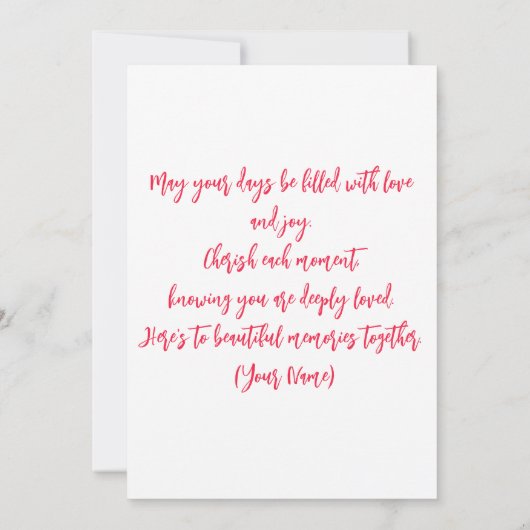 May your days be filled with love
and joy.
Cherish each moment,
knowing you are deeply loved.
Here's to beautiful memories together.
(Your Name)